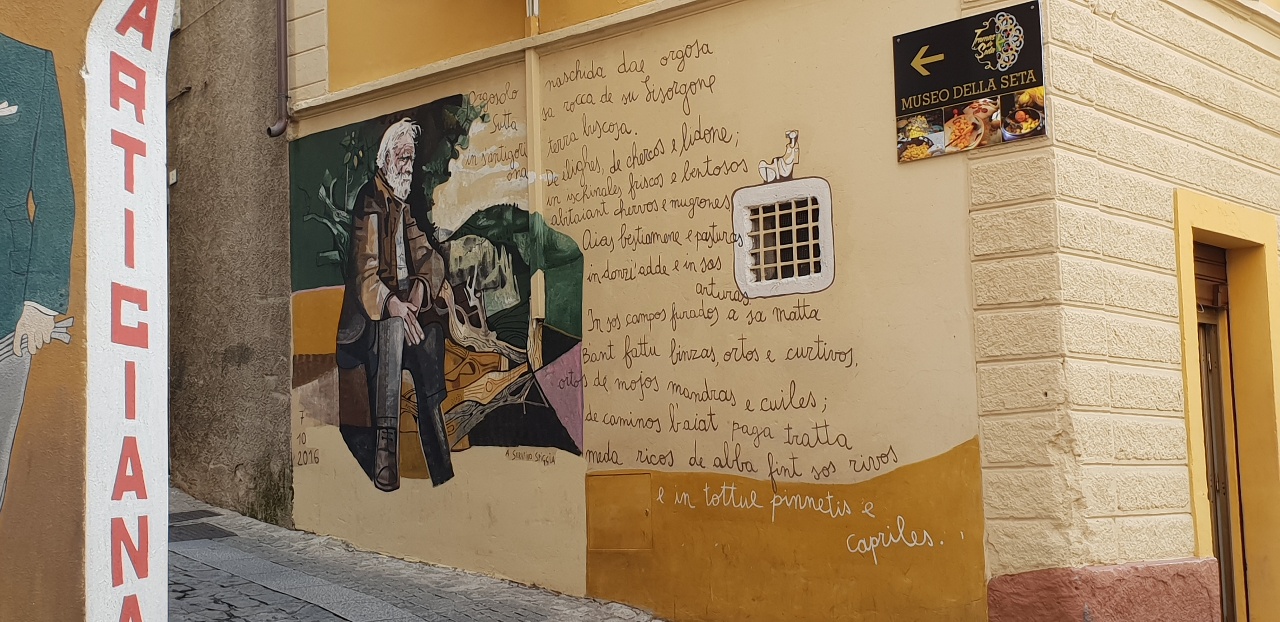 ARTICIANA
Orgosolo
Sutta
naschida dae orgosa
sa rocca de su Sisorgone
terra buscosa.
De elighes, de chercos e lidone;
in ischinales friscos e bentosos
abitaiant chervos e mugrones
Aias bestiamene e pasturas
in donzi'adde e in sos
arturas
In sos campos furados a sa matta
Bant fattu binzas, ortos e curtivos,
ortos de mojos mandras e cuiles;
de caminos b'aiat paga tratta
meda ricos de abba fint sos rivos
e in tottue pinnetis e
capriles.
7
10
2016
Tramas de Seda
MUSEO DELLA SETA